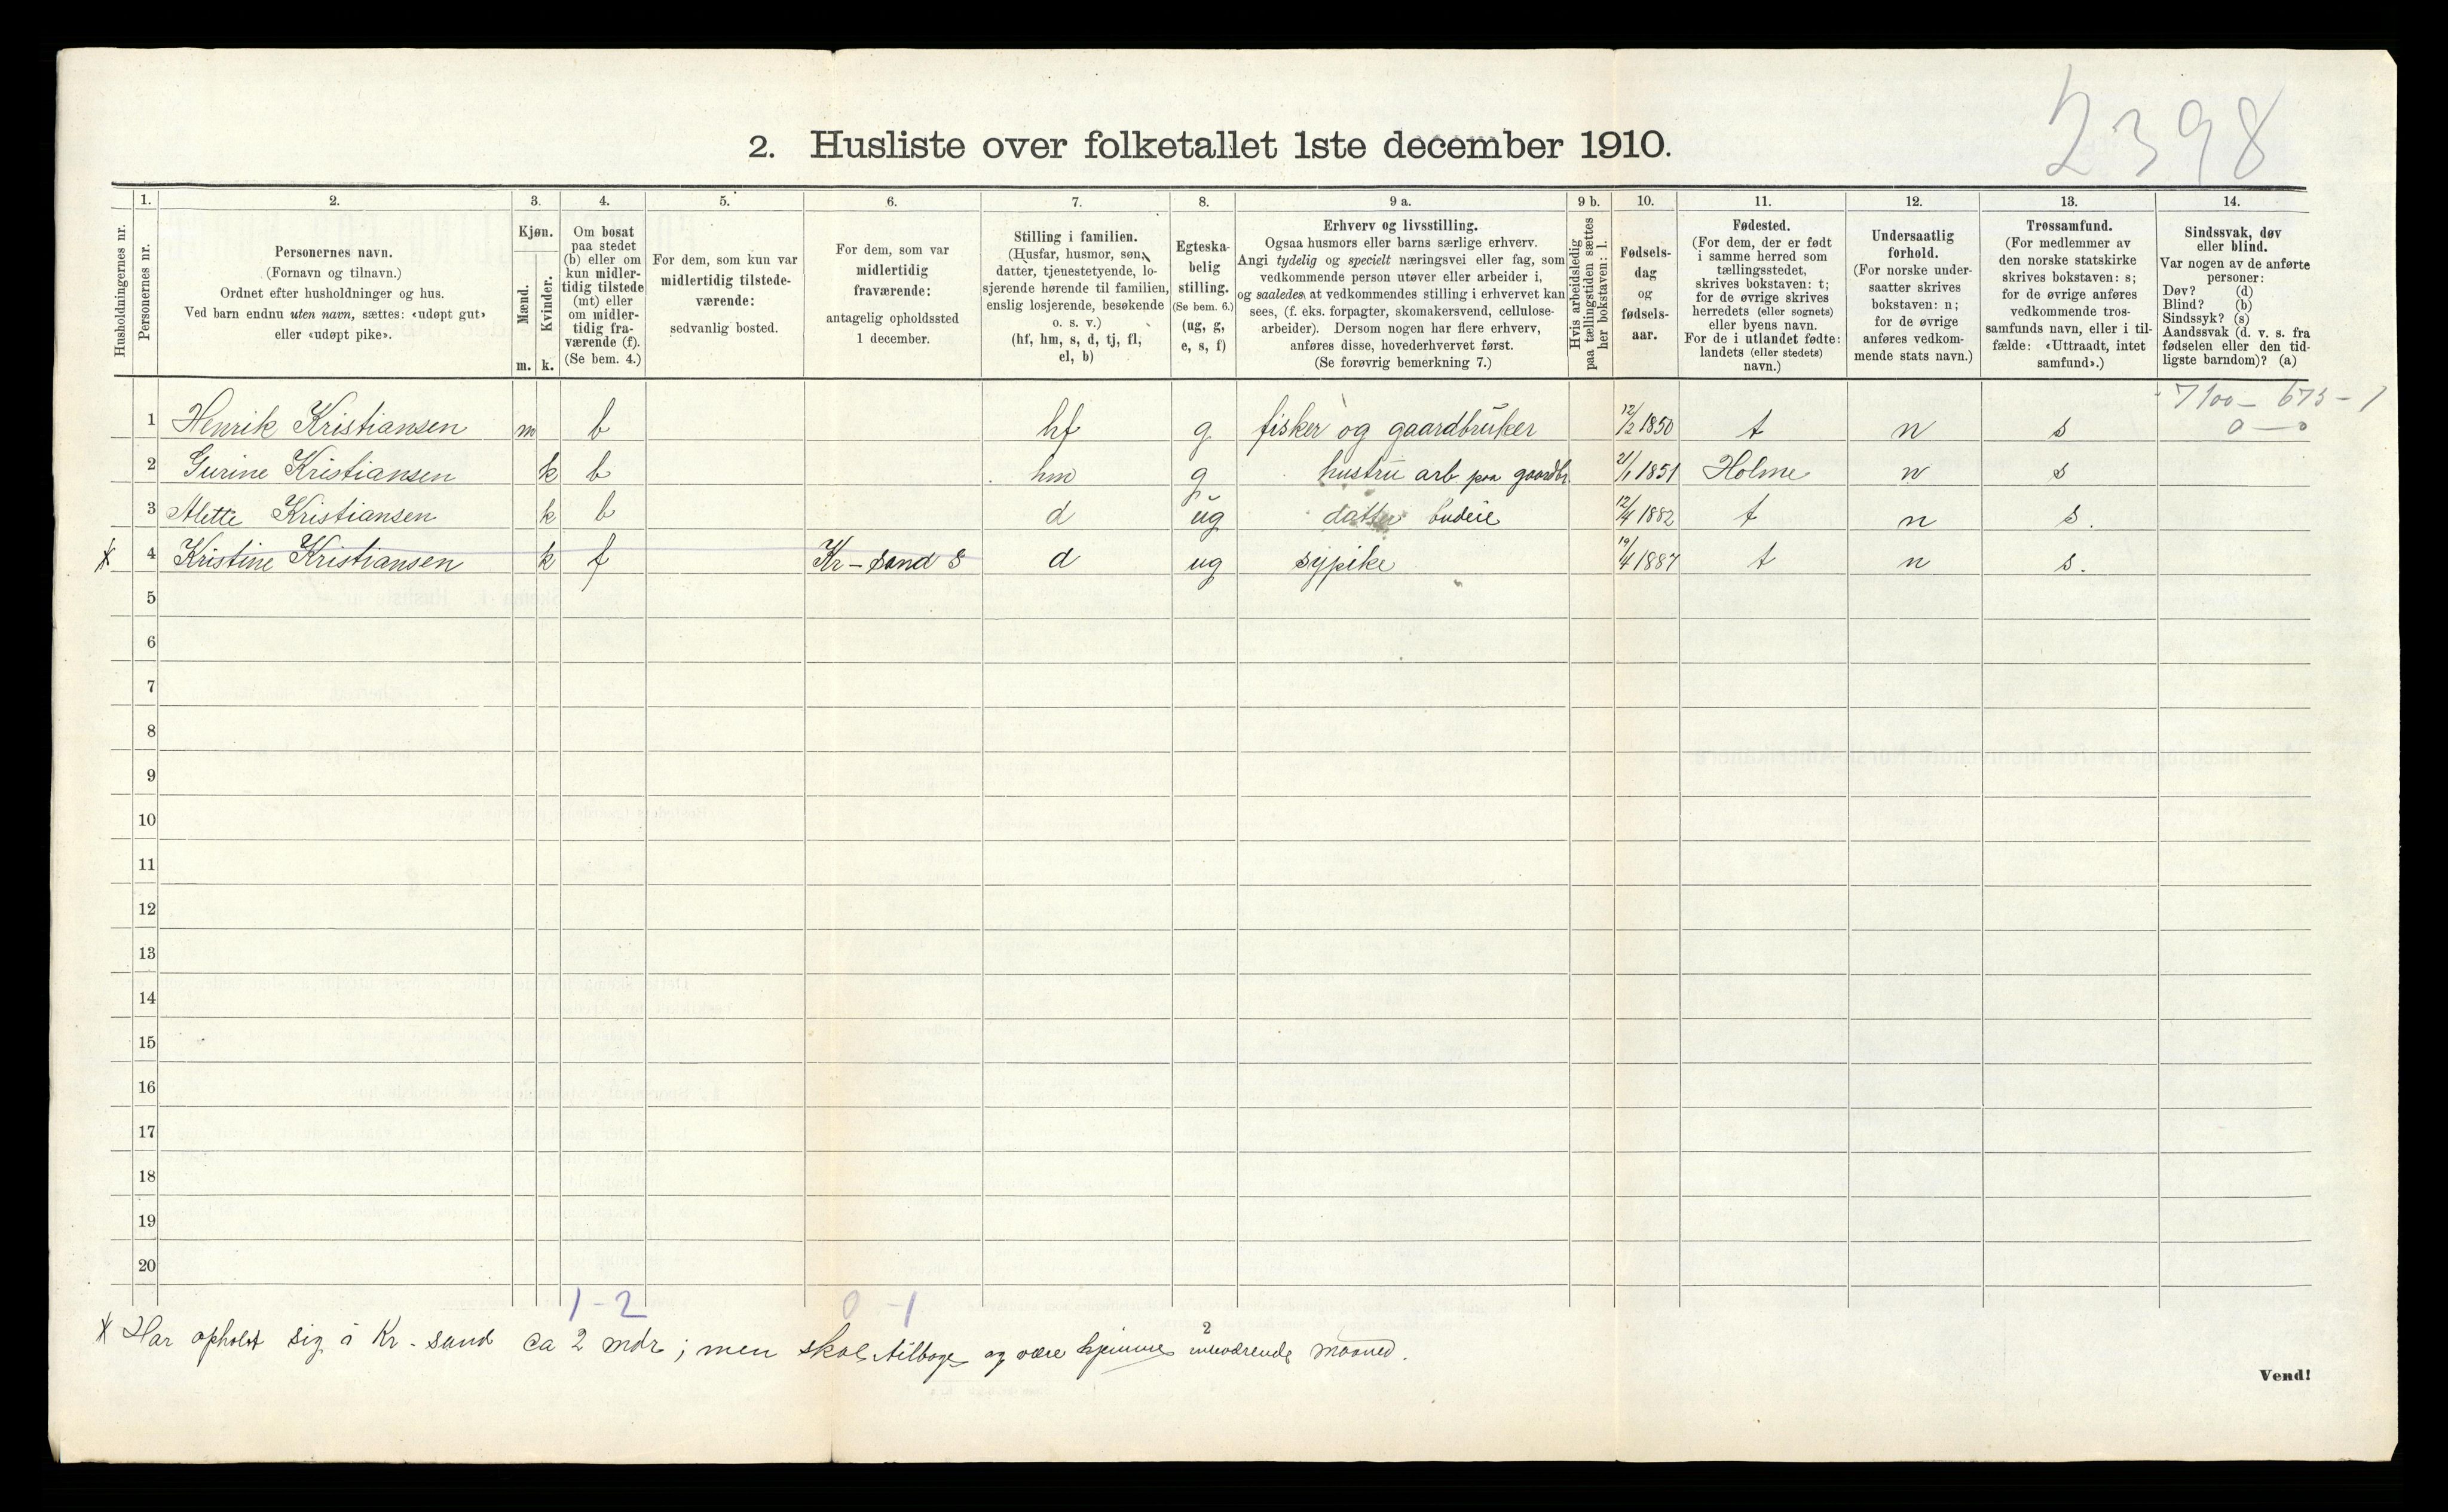 2398
2. Husliste over folketallet 1ste december 1910.
Husholdningernes nr.
1. Personernes nr.
2. Personernes navn.
(Fornavn og tilnavn.)
Ordnet efter husholdninger og hus.
Ved barn endnu uten navn, sættes: «udøpt gut»
eller «udøpt pike».
3. Kjøn.
Mænd. Kvinder.
m. k.
4. Om bosat
paa stedet
(b) eller om
kun midler-
tidig tilstede
(mt) eller
om midler-
tidig fra-
værende (f).
(Se bem. 4.)
5. For dem, som kun var
midlertidig tilstede-
værende:
sedvanlig bosted.
6. For dem, som var
midlertidig
fraværende:
antagelig opholdssted
1 december.
7. Stilling i familien.
(Husfar, husmor, søn,
datter, tjenestetyende, lo-
sjerende hørende til familien,
enslig losjerende, besøkende
o. s. v.)
(hf, hm, s, d, tj, fl,
el, b)
8. Egteska-
belig
stilling.
(Se bem. 6.)
(ug, g,
e, s, f)
9 a. Erhverv og livsstilling.
Ogsaa husmors eller barns særlige erhverv.
Angi tydelig og specielt næringsvei eller fag, som
vedkommende person utøver eller arbeider i,
og saaledes at vedkommendes stilling i erhvervet kan
sees, (f. eks. forpagter, skomakersvend, cellulose-
arbeider). Dersom nogen har flere erhverv,
anføres disse, hovederhvervet først.
(Se forøvrig bemerkning 7.)
9 b. Hvis arbeidsledig
paa tællingstiden sættes
her bokstaven: l.
10. Fødsels-
dag
og
fødsels-
aar.
11. Fødested.
(For dem, der er født
i samme herred som
tællingsstedet,
skrives bokstaven: t;
for de øvrige skrives
herredets (eller sognets)
eller byens navn.
For de i utlandet fødte:
landets (eller stedets)
navn.)
12. Undersaatlig
forhold.
(For norske under-
saatter skrives
bokstaven: n;
for de øvrige
anføres vedkom-
mende stats navn.)
13. Trossamfund.
(For medlemmer av
den norske statskirke
skrives bokstaven: s;
for de øvrige anføres
vedkommende tros-
samfunds navn, eller i til-
fælde: «Uttraadt, intet
samfund».)
14. Sindssvak, døv
eller blind.
Var nogen av de anførte
personer:
Døv? (d)
Blind? (b)
Sindssyk? (s)
Aandssvak (d. v. s. fra
fødselen eller den tid-
ligste barndom)? (a)
7100 – 673 – 1
0 — 0
1 Henrik Kristiansen m b hf g fisker og gaardbruker 12/2 1850 t n s
2 Gurine Kristiansen k b hm g hustru arb paa gaardbr. 21/1 1851 Holme n s
3 Alette Kristiansen k b d ug datter budeie 12/4 1882 t n s.
x 4 Kristine Kristiansen k f Kr-sand S d ug sypike 19/4 1887 t n s.
5
6
7
8
9
10
11
12
13
14
15
16
17
18
19
20
1-2 0-1
x Har opholdt sig i Kr-sand ca 2 mdr; men skal tilbage og være hjemme inneværende maaned.
2
Vend!